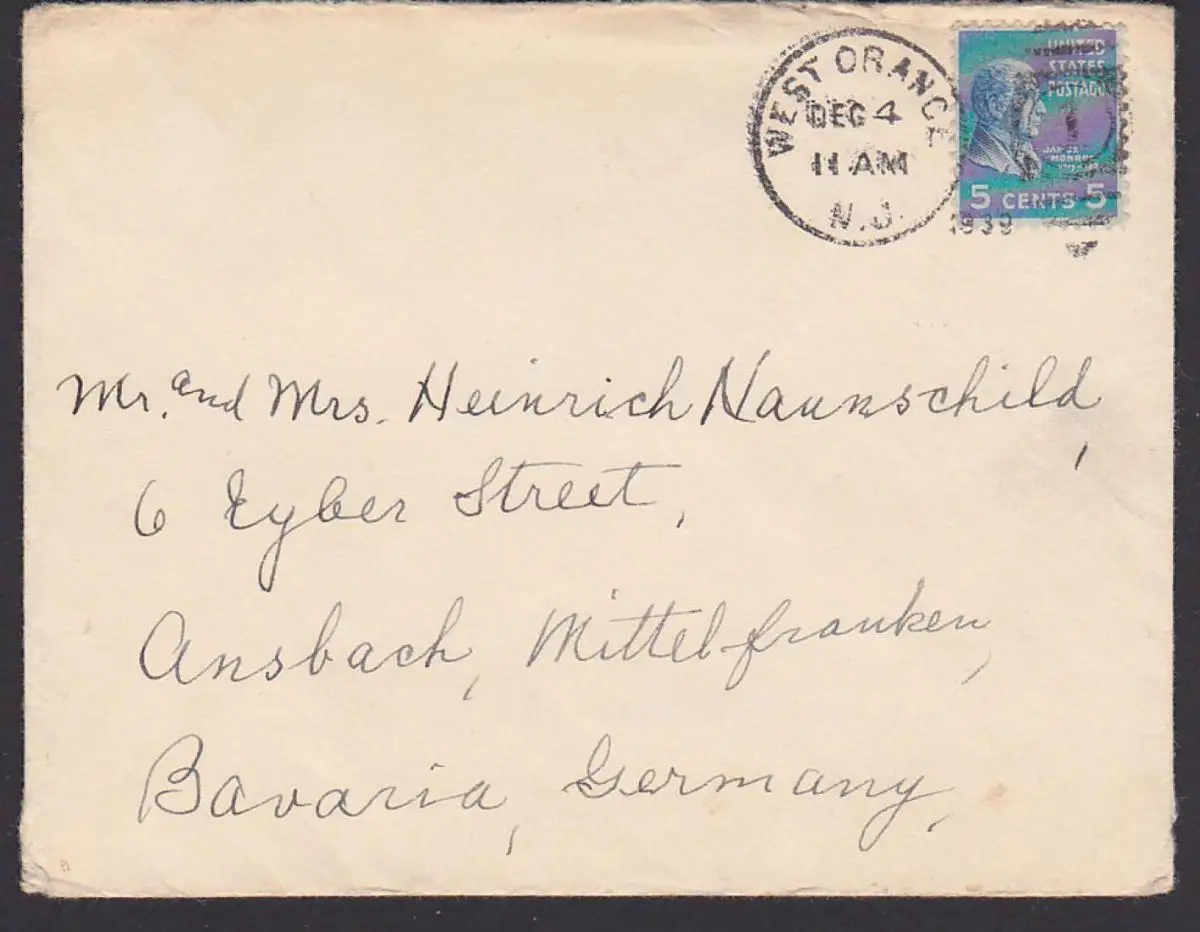 WEST ORANGE
DEC 4
11 AM
N.J.
1939
UNITED
STATES
POSTAGE
JAMES
MONROE
5 CENTS 5
Mr. and Mrs. Heinrich Naunschild,
6 Eyber Street,
Ansbach, Mittelfranken,
Bavaria, Germany,